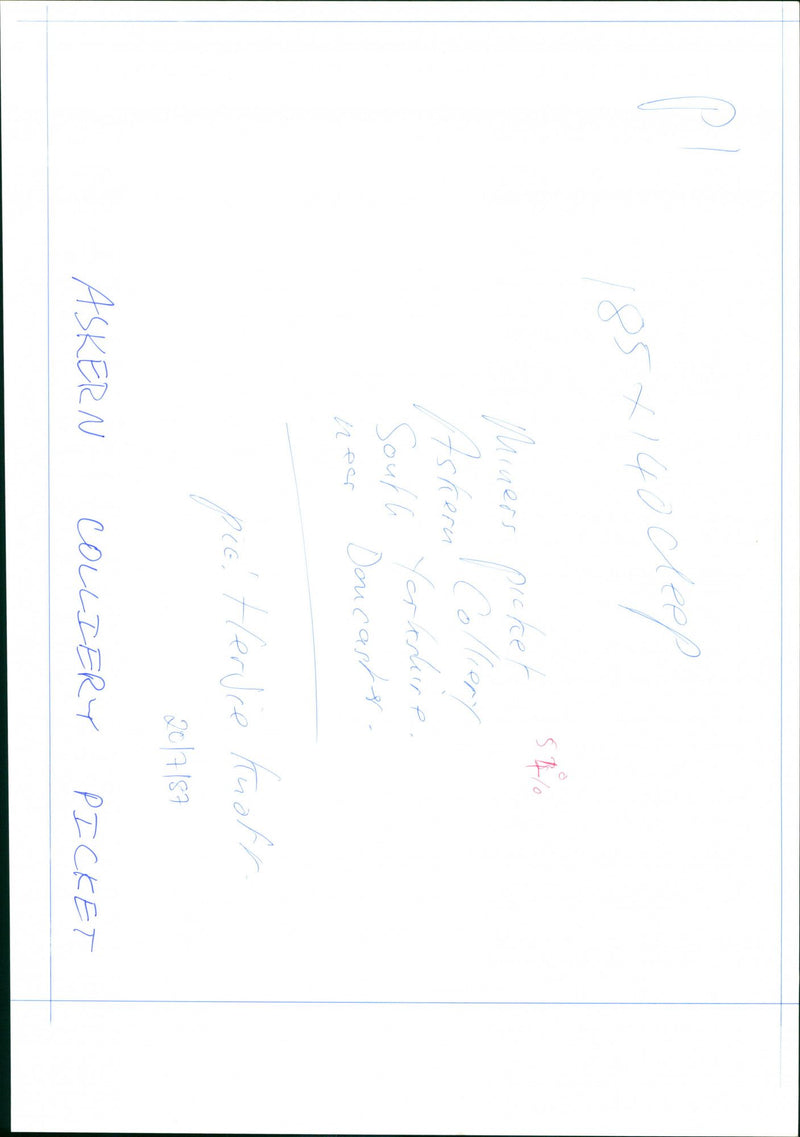 P1
185 x 140 deep
Miners picket
Askern Colliery
South Yorkshire.
near Doncaster.
pic: Herbie Knott.
20/7/87
ASKERN COLLIERY PICKET